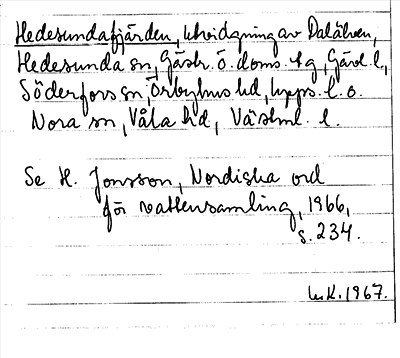 Hedesundafjärden, utvidgning av Dalälven,
Hedesunda sn, Gästr. ö. doms. tg, Gävl. l.,
Söderfors sn, Örbyhus hd, Upps. l. o.
Nora sn, Våla hd, Västml. l.
Se H. Jonsson, Nordiska ord
för vattensamling, 1966,
s. 234.
1967.